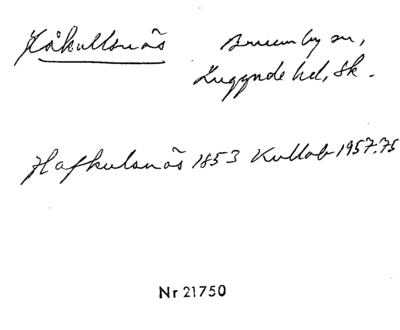 Håkullsnäs Brunnby sn,
Luggude hd, Sk.
Hafkulsnäs 1853 Kullab 1957.75
Nr 21750